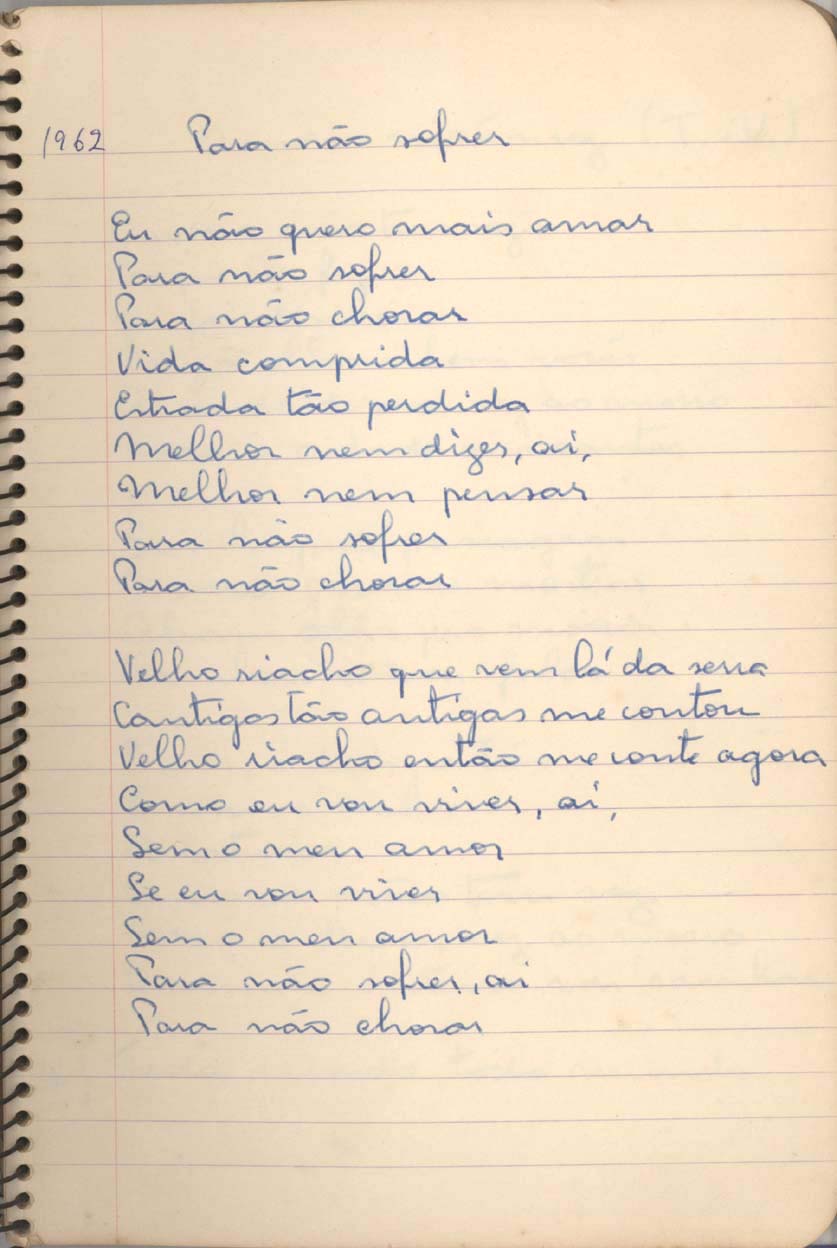 1962 Para não sofrer
Eu não quero mais amar
Para não sofrer
Para não chorar
Vida comprida
Estrada tão perdida
Melhor nem dizer, ai,
Melhor nem pensar
Para não sofrer
Para não chorar
Velho riacho que vem lá da serra
Cantigas tão antigas me contou
Velho riacho então me conte agora
Como eu vou viver, ai,
Sem o meu amor
Se eu vou viver
Sem o meu amor
Para não sofrer, ai
Para não chorar